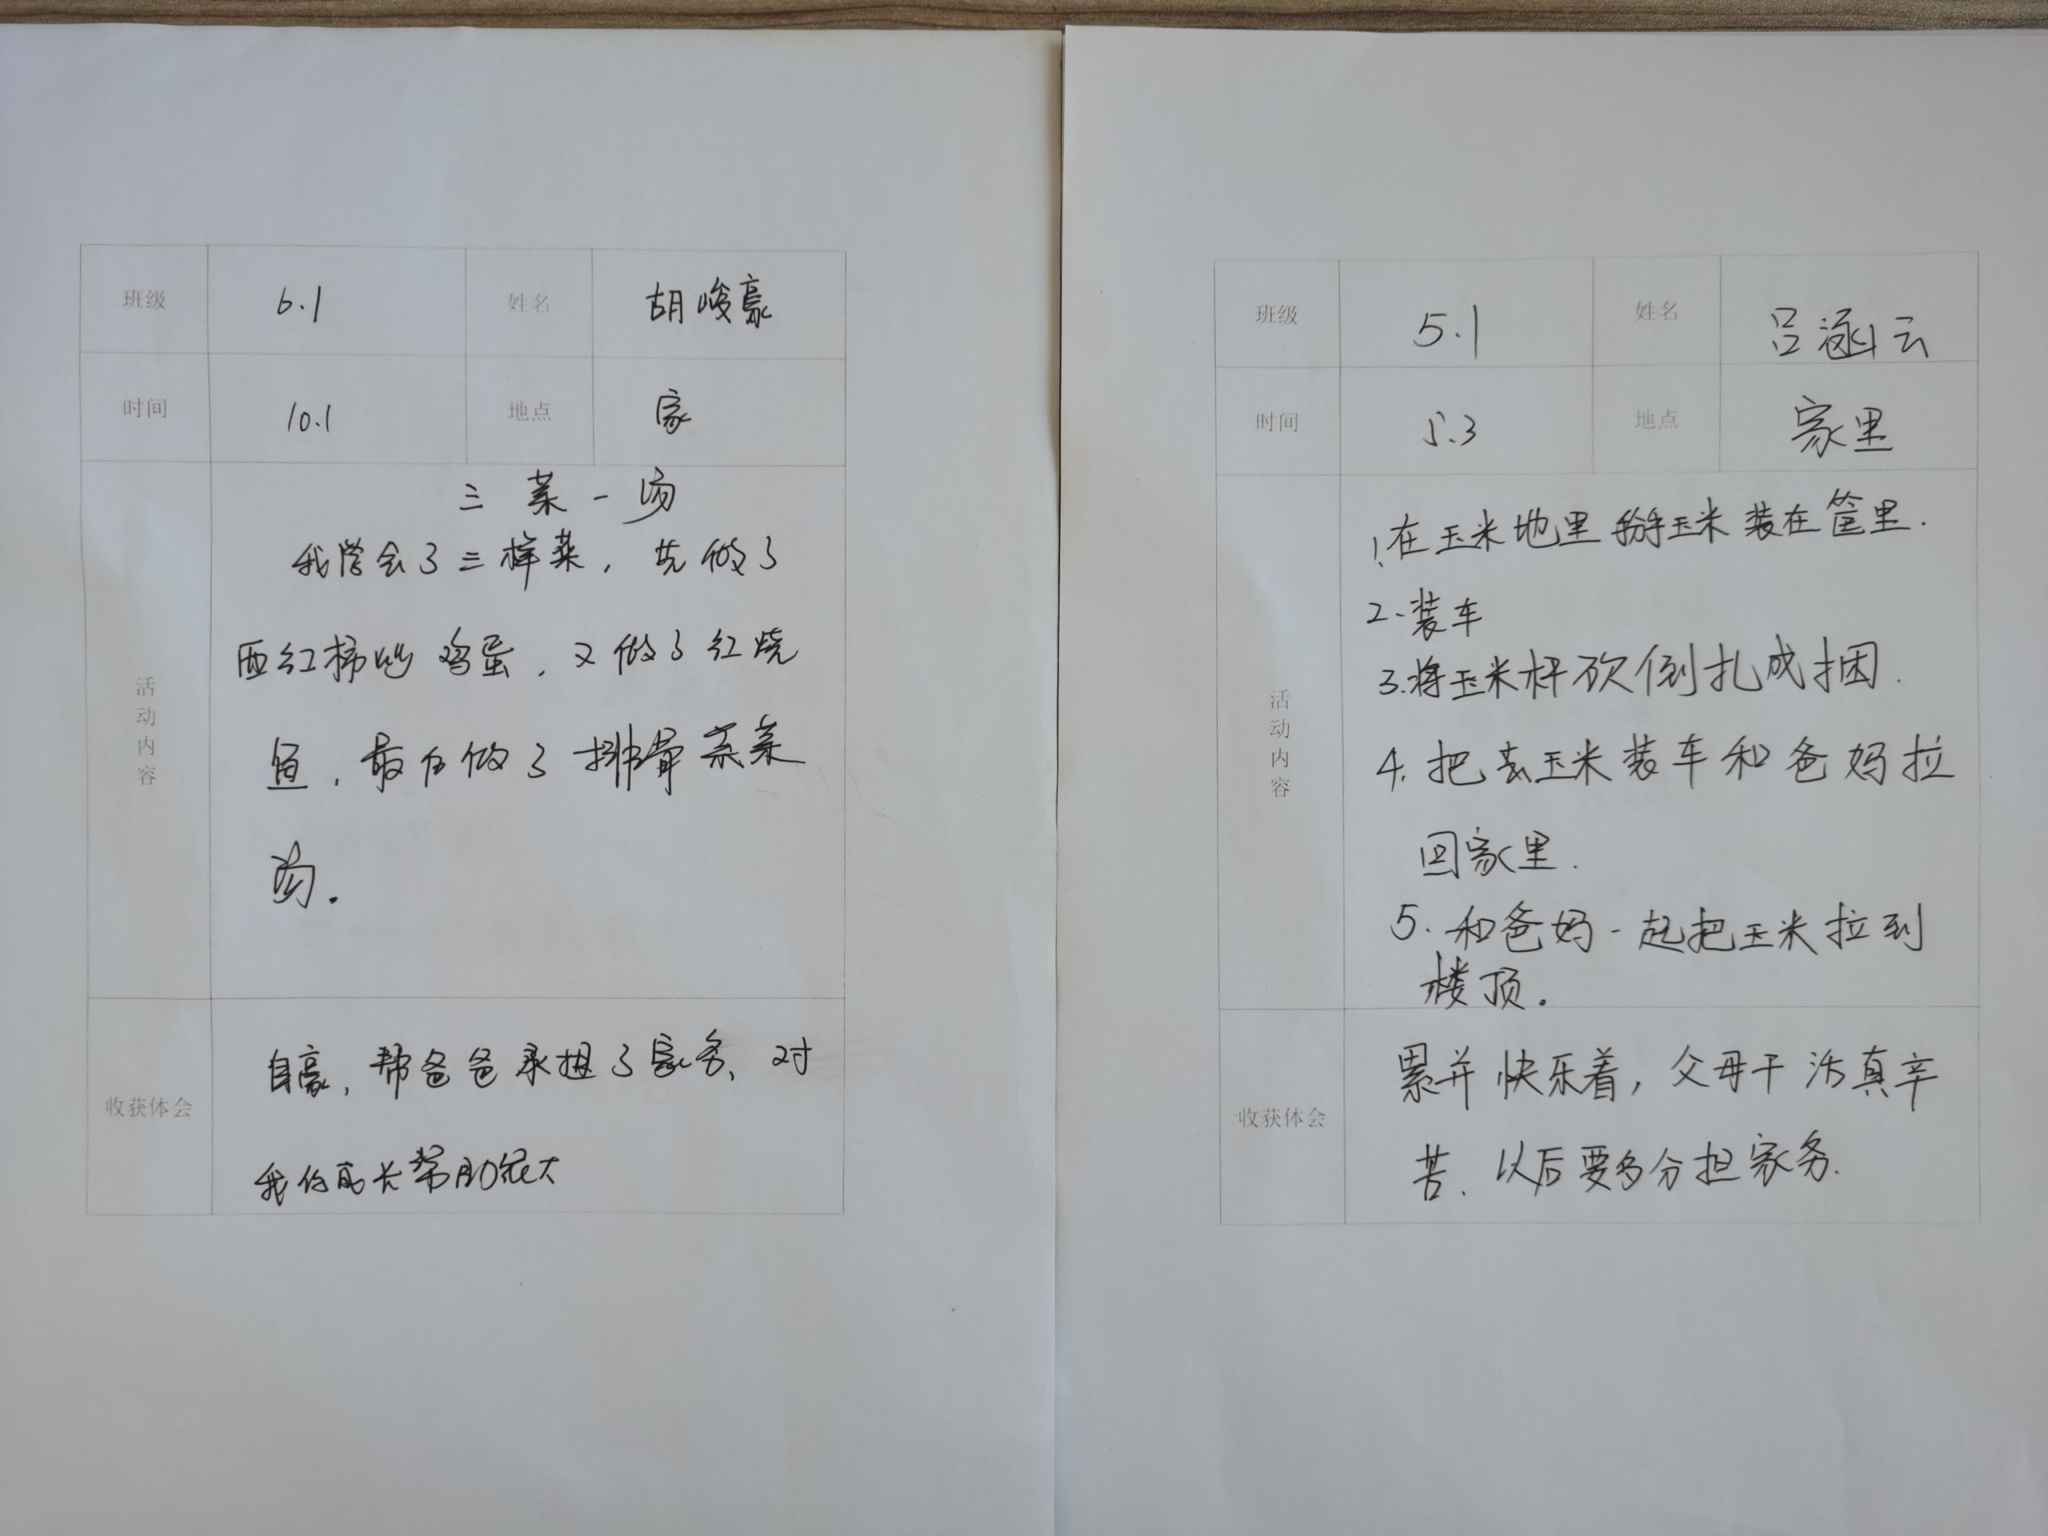 班级 6.1 姓名 胡峻豪
时间 10.1 地点 家
活动内容
三菜一汤
我学会了三样菜，先做了
西红柿炒鸡蛋，又做了红烧
鱼，最后做了排骨蒸菜
汤。
收获体会
自豪，帮爸爸承担了家务、对
我的成长帮助很大
班级 5.1 姓名 吕涵云
时间 5.3 地点 家里
活动内容
1.在玉米地里掰玉米装在筐里.
2.装车
3.将玉米杆砍倒扎成捆.
4.把玉米装车和爸妈拉
回家里.
5.和爸妈一起把玉米拉到
楼顶.
收获体会
累并快乐着，父母干活真辛
苦、以后要多分担家务.